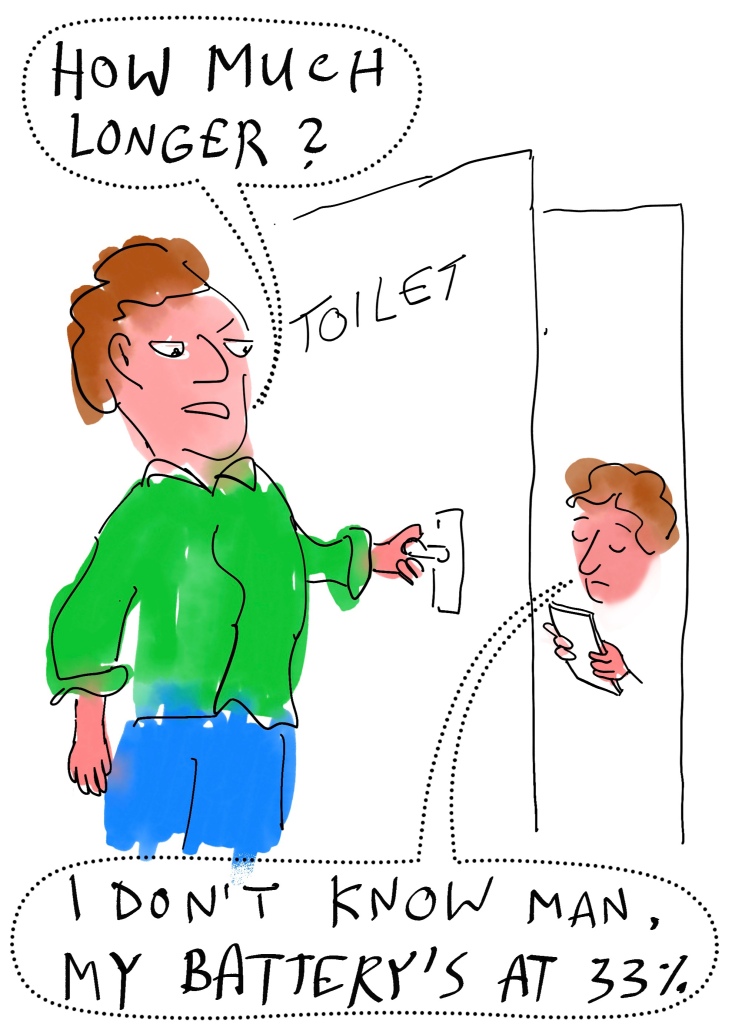 HOW MUCH
LONGER ?
TOILET
I DON'T KNOW MAN,
MY BATTERY'S AT 33%